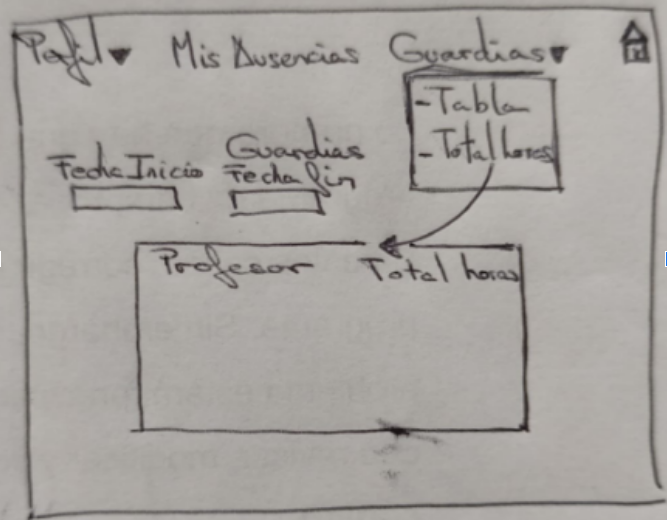 Perfil▼ Mis Ausencias Guardias▼
-Tabla
-Total horas
Guardias
Fecha Inicio Fecha fin
Profesor Total horas